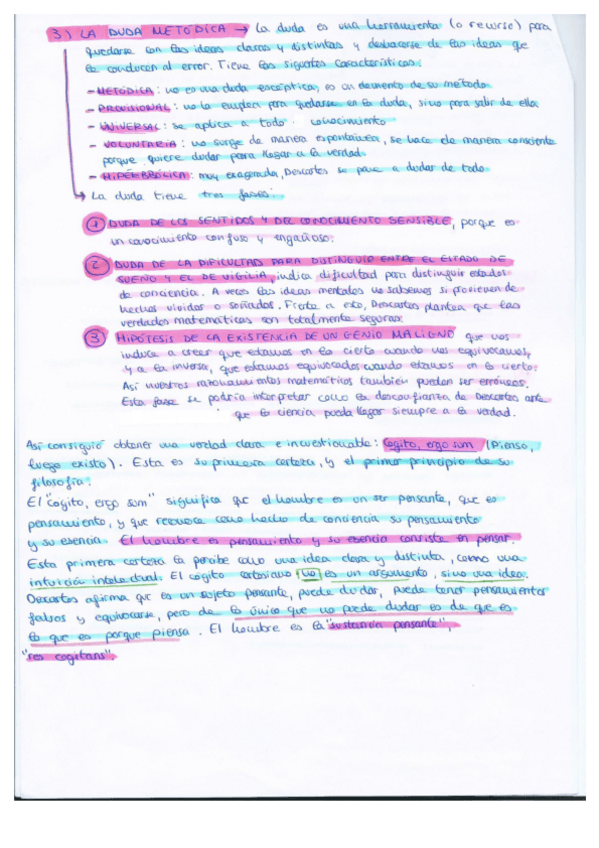 3) LA DUDA METÓDICA → La duda es una herramienta (o recurso) para
quedarse con las ideas claras y distintas y deshacerse de las ideas que
le conducen al error. Tiene las siguientes características:
- METÓDICA: no es una duda escéptica, es un elemento de su método.
- PROVISIONAL: no la emplea para quedarse en la duda, sino para salir de ella.
- UNIVERSAL: se aplica a todo conocimiento
- VOLUNTARIA: no surge de manera espontánea, se hace de manera consciente
porque quiere dudar para llegar a la verdad.
- HIPERBÓLICA: muy exagerada, Descartes se pone a dudar de todo.
→ La duda tiene tres fases:
1 DUDA DE LOS SENTIDOS Y DEL CONOCIMIENTO SENSIBLE, porque es
un conocimiento confuso y engañoso.
2 DUDA DE LA DIFICULTAD PARA DISTINGUIR ENTRE EL ESTADO DE
SUEÑO Y EL DE VIGILIA, indica dificultad para distinguir estados
de conciencia. A veces las ideas mentales no sabemos si provienen de
hechos vividos o soñados. Frente a esto, Descartes plantea que las
verdades matemáticas son totalmente seguras.
3 HIPÓTESIS DE LA EXISTENCIA DE UN GENIO MALIGNO que nos
induce a creer que estamos en lo cierto cuando nos equivocamos,
y a la inversa, que estamos equivocados cuando estamos en lo cierto.
Así nuestros razonamientos matemáticos también pueden ser erróneos.
Esta fase se podría interpretar como la desconfianza de Descartes ante
que la ciencia pueda llegar siempre a la verdad.
Así consiguió obtener una verdad clara e incuestionable: Cogito, ergo sum (Pienso,
luego existo). Esta es su primera certeza, y el primer principio de su
filosofía.
El "cogito, ergo sum" significa que el hombre es un ser pensante, que es
pensamiento, y que reconoce como hecho de conciencia su pensamiento
y su esencia. El hombre es pensamiento y su esencia consiste en pensar.
Esta primera certeza la percibe como una idea clara y distinta, como una
intuición intelectual. El cogito cartesiano no es un argumento, sino una idea.
Descartes afirma que es un sujeto pensante, puede dudar, puede tener pensamientos
falsos y equivocarse, pero de lo único que no puede dudar es de que es
lo que es porque piensa. El hombre es la "sustancia pensante",
"res cogitans".